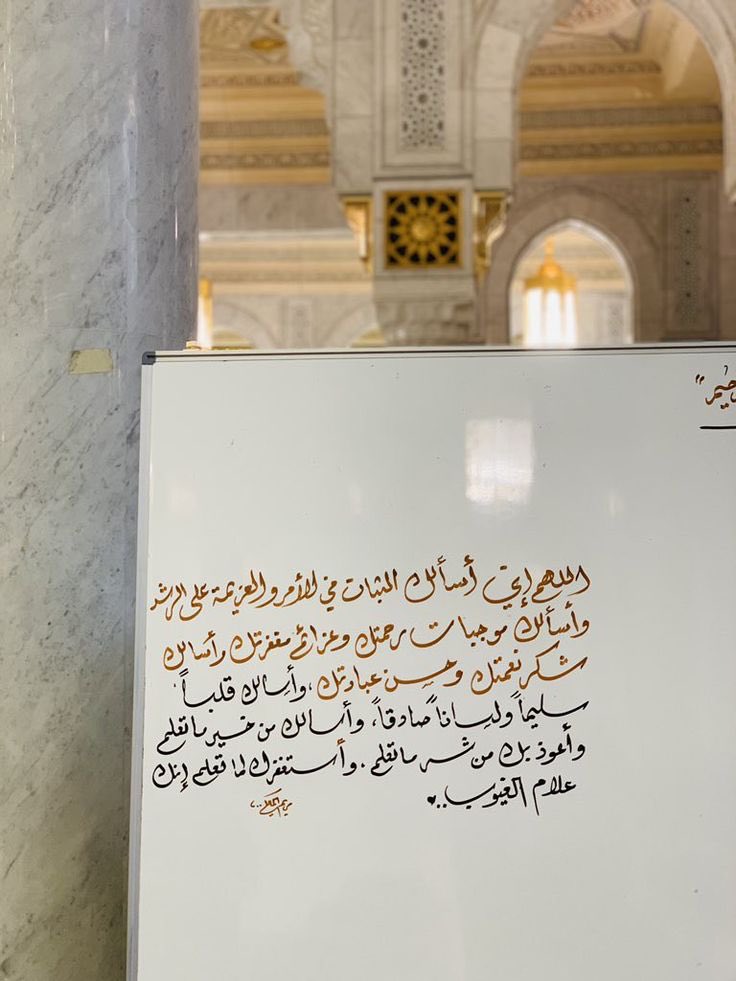 اللهم إني أسألك الثبات في الأمر والعزيمة على الرشد
وأسألك موجبات رحمتك وعزائم مغفرتك وأسالك
شكر نعمتك وحسن عبادتك، وأسالك قلباً
سليماً ولساناً صادقاً، وأسالك من خير ما تعلم
وأعوذ بك من شر ما تعلم. وأستغفرك لما تعلم إنك
علام الغيوب..